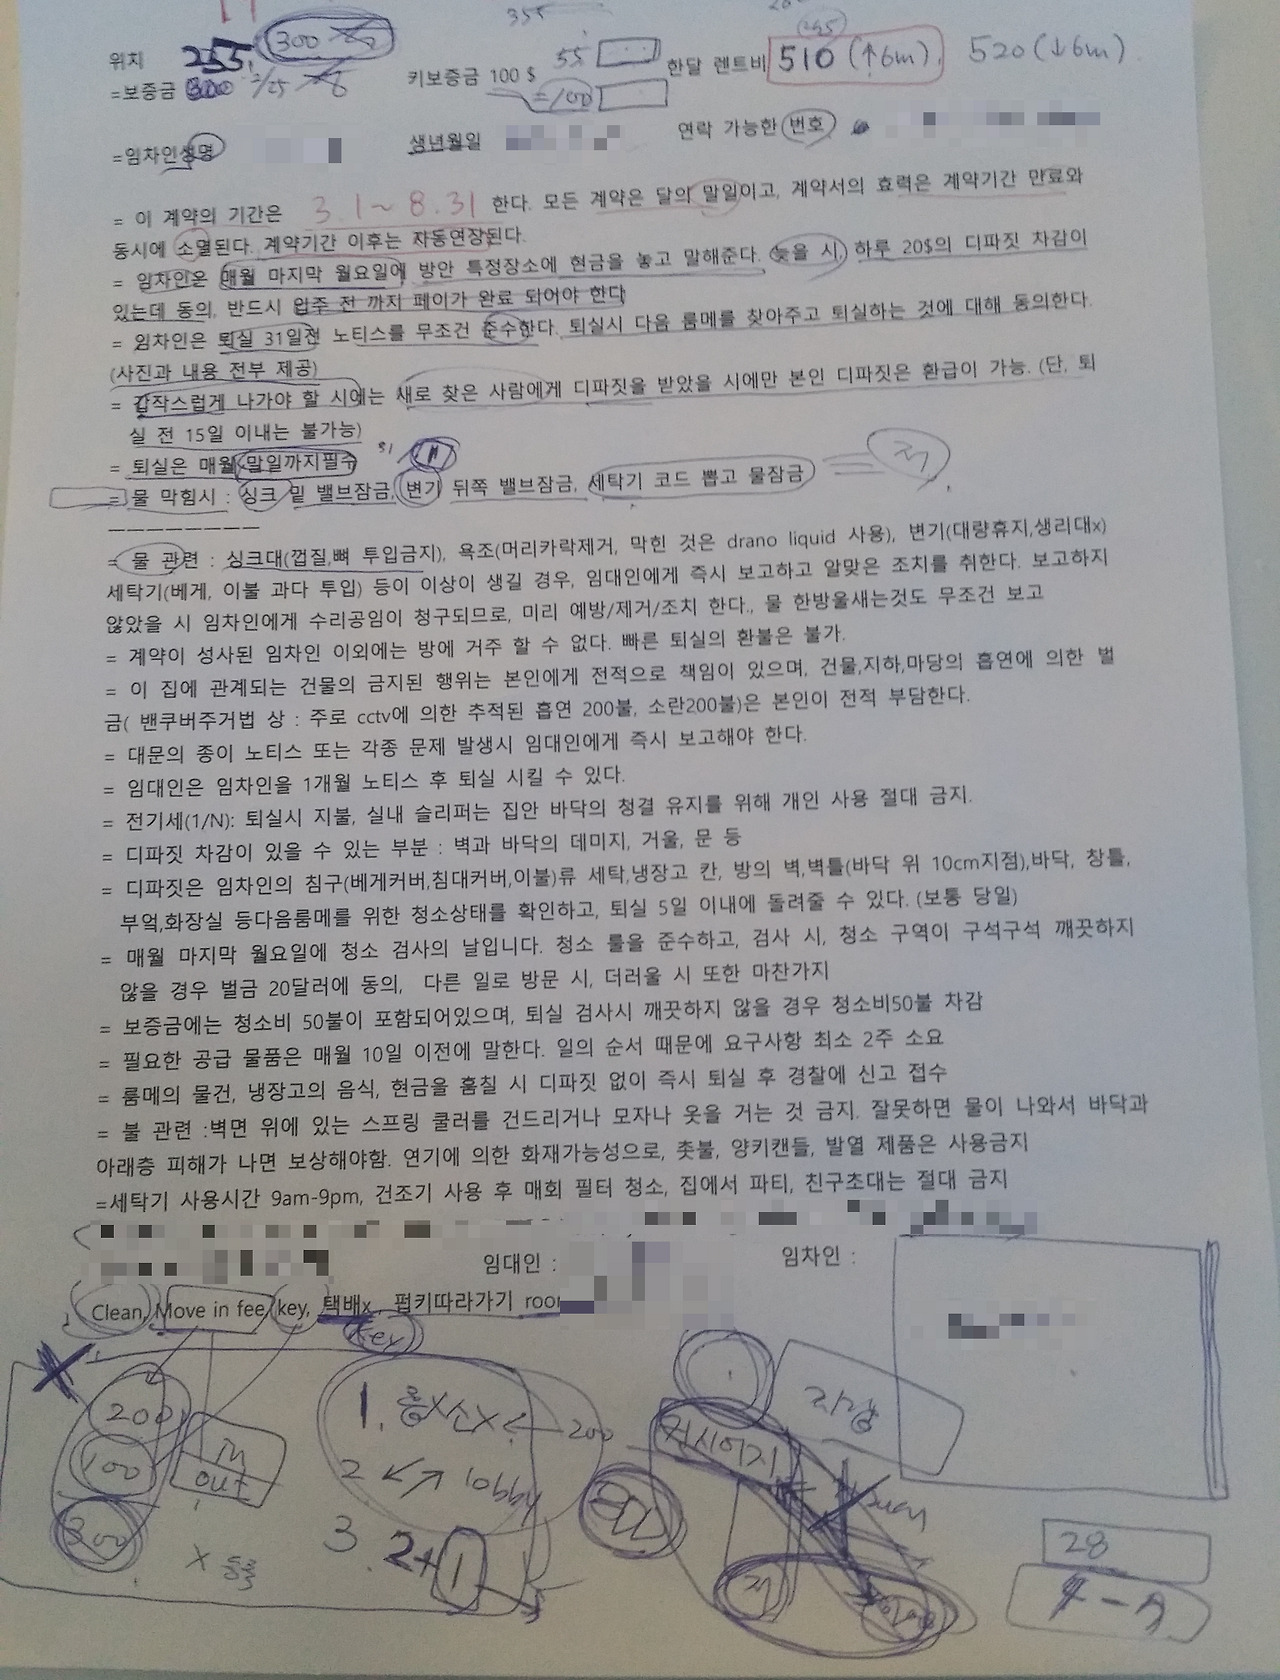 355
위치 255, 300
=보증금 300 2/25 키보증금 100 $ 55 =100 한달 렌트비 510 (↑6m). 520 (↓6m).
=임차인성명 생년월일 연락 가능한 번호
= 이 계약의 기간은 3.1~8.31 한다. 모든 계약은 달의 말일이고, 계약서의 효력은 계약기간 만료와
동시에 소멸된다. 계약기간 이후는 자동연장된다.
= 임차인은 매월 마지막 월요일에 방안 특정장소에 현금을 놓고 말해준다. 늦을 시, 하루 20$의 디파짓 차감이
있는데 동의, 반드시 입주 전 까지 페이가 완료 되어야 한다
= 임차인은 퇴실 31일전 노티스를 무조건 준수한다. 퇴실시 다음 룸메를 찾아주고 퇴실하는 것에 대해 동의한다.
(사진과 내용 전부 제공)
= 갑작스럽게 나가야 할 시에는 새로 찾은 사람에게 디파짓을 받았을 시에만 본인 디파짓은 환급이 가능. (단, 퇴
실 전 15일 이내는 불가능)
= 퇴실은 매월 말일까지필수 31 / 11
= 물 막힘시 : 싱크 밑 밸브잠금, 변기 뒤쪽 밸브잠금, 세탁기 코드 뽑고 물잠금
————————
= 물 관련 : 싱크대(껍질,뼈 투입금지), 욕조(머리카락제거, 막힌 것은 drano liquid 사용), 변기(대량휴지,생리대x)
세탁기(베게, 이불 과다 투입) 등이 이상이 생길 경우, 임대인에게 즉시 보고하고 알맞은 조치를 취한다. 보고하지
않았을 시 임차인에게 수리공임이 청구되므로, 미리 예방/제거/조치 한다., 물 한방울새는것도 무조건 보고
= 계약이 성사된 임차인 이외에는 방에 거주 할 수 없다. 빠른 퇴실의 환불은 불가.
= 이 집에 관계되는 건물의 금지된 행위는 본인에게 전적으로 책임이 있으며, 건물,지하,마당의 흡연에 의한 벌
금( 밴쿠버주거법 상 : 주로 cctv에 의한 추적된 흡연 200불, 소란200불)은 본인이 전적 부담한다.
= 대문의 종이 노티스 또는 각종 문제 발생시 임대인에게 즉시 보고해야 한다.
= 임대인은 임차인을 1개월 노티스 후 퇴실 시킬 수 있다.
= 전기세(1/N): 퇴실시 지불, 실내 슬리퍼는 집안 바닥의 청결 유지를 위해 개인 사용 절대 금지.
= 디파짓 차감이 있을 수 있는 부분 : 벽과 바닥의 데미지, 거울, 문 등
= 디파짓은 임차인의 침구(베게커버,침대커버,이불)류 세탁,냉장고 칸, 방의 벽,벽틀(바닥 위 10cm지점),바닥, 창틀,
부엌,화장실 등다음룸메를 위한 청소상태를 확인하고, 퇴실 5일 이내에 돌려줄 수 있다. (보통 당일)
= 매월 마지막 월요일에 청소 검사의 날입니다. 청소 룰을 준수하고, 검사 시, 청소 구역이 구석구석 깨끗하지
않을 경우 벌금 20달러에 동의, 다른 일로 방문 시, 더러울 시 또한 마찬가지
= 보증금에는 청소비 50불이 포함되어있으며, 퇴실 검사시 깨끗하지 않을 경우 청소비50불 차감
= 필요한 공급 물품은 매월 10일 이전에 말한다. 일의 순서 때문에 요구사항 최소 2주 소요
= 룸메의 물건, 냉장고의 음식, 현금을 훔칠 시 디파짓 없이 즉시 퇴실 후 경찰에 신고 접수
= 불 관련 :벽면 위에 있는 스프링 쿨러를 건드리거나 모자나 옷을 거는 것 금지. 잘못하면 물이 나와서 바닥과
아래층 피해가 나면 보상해야함. 연기에 의한 화재가능성으로, 촛불, 양키캔들, 발열 제품은 사용금지
=세탁기 사용시간 9am-9pm, 건조기 사용 후 매회 필터 청소, 집에서 파티, 친구초대는 절대 금지
임대인 : 임차인 :
Clean, Move in fee, key, 택배x, 펍키따라가기 room
key
200
100
200
in
out
2 lobby
3. 2+1
200
28